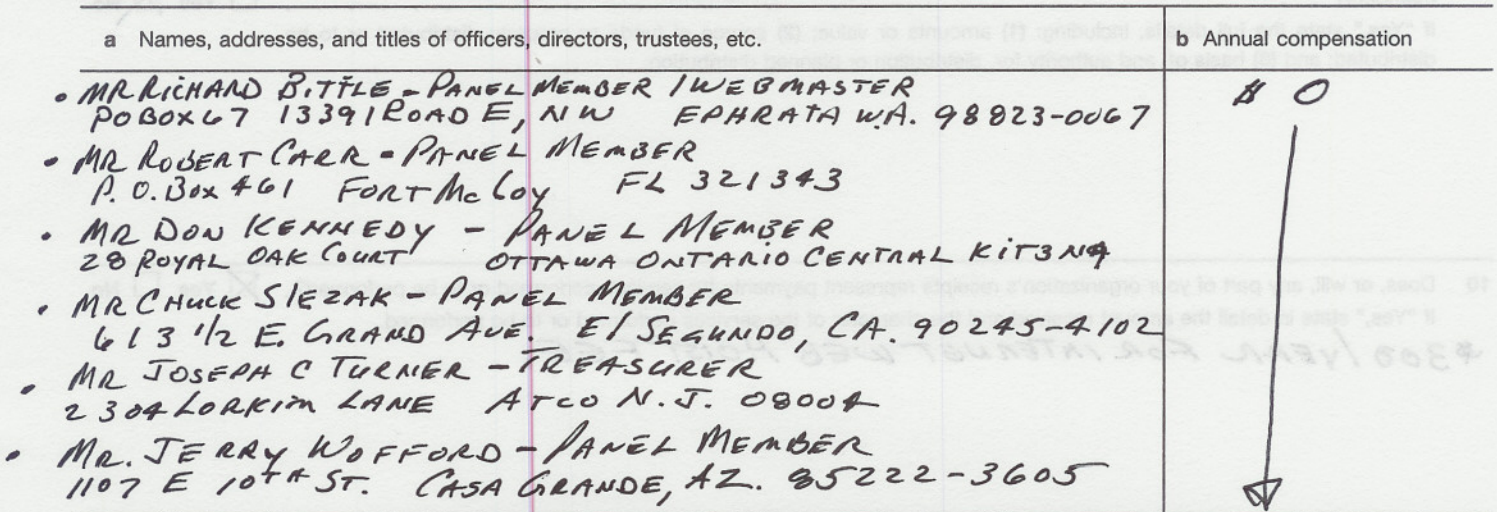 a Names, addresses, and titles of officers, directors, trustees, etc.
b Annual compensation
• MR RICHARD BITTLE - PANEL MEMBER / WEBMASTER
$ 0
PO BOX 67 13391 ROAD E, NW EPHRATA WA. 98823-0067
• MR ROBERT CARR - PANEL MEMBER
P. O. Box 461 FORT McCoy FL 321343
• MR DON KENNEDY - PANEL MEMBER
28 ROYAL OAK COURT OTTAWA ONTARIO CENTRAL
• MR CHUCK SIEZAK - PANEL MEMBER
613 1/2 E. GRAND AVE. El SEGUNDO, CA. 90245-4102
• MR JOSEPH C TURNER - TREASURER
2304 LORKIM LANE ATCO N.J. 08004
• MR. JERRY WOFFORD - PANEL MEMBER
1107 E 10TH ST. CASA GRANDE, AZ. 85222-3605